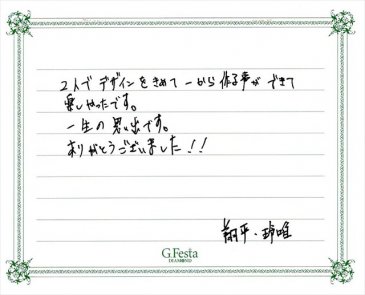 2人でデザインをきめて一から作る事ができて
楽しかったです。
一生の思い出です。
ありがとうございました!!
翔平・玲唯
G.Festa
DIAMOND